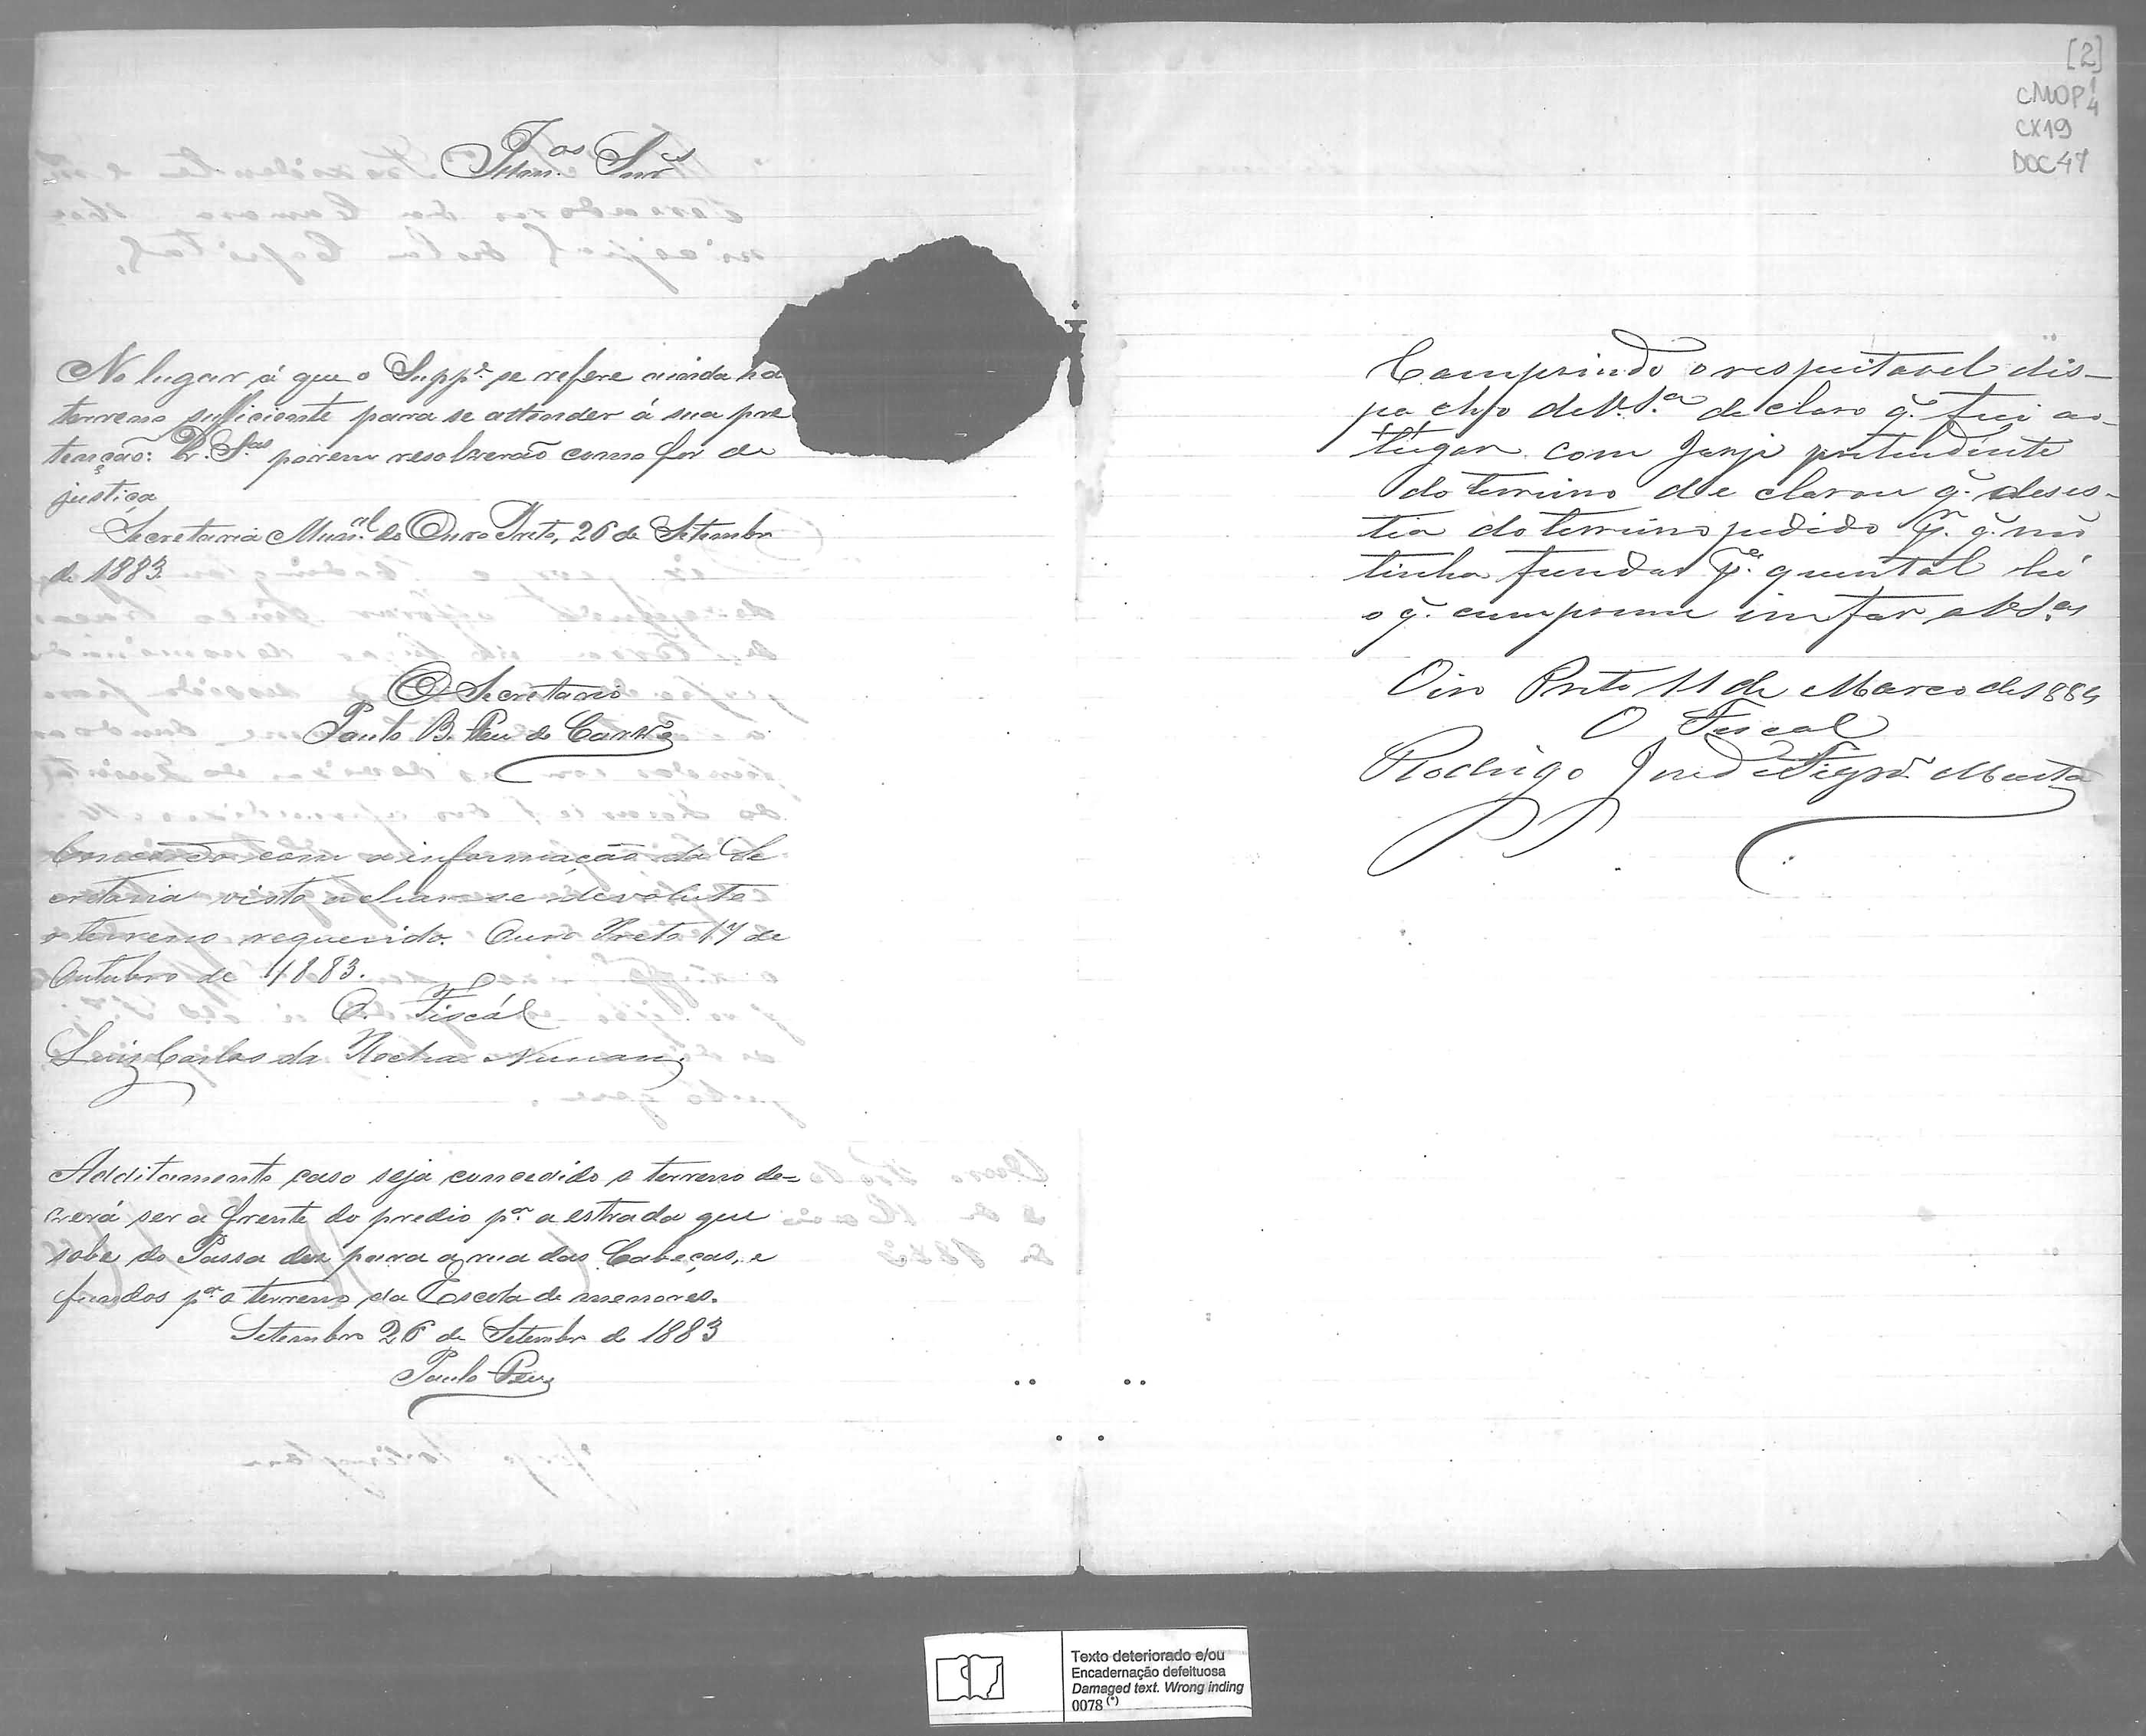 Illmos Snrs
No lugar á que o Suppe se refere ainda ha
terreno sufficiente para se attender á sua pre
tenção: V. Sas porem resolverão como for de
justiça
Secretaria Munal de Ouro Preto, 26 de Setembro
de 1883.
O Secretario
Paulo B. Peu de Carvo
Concordo com a informação da Se
cretaria visto achar-se devoluto
o terreno requerido. Ouro Preto 17 de
Outubro de 1883.
O. Fiscál
Luiz Carlos da Rocha Nunan
Additamento caso seja concedido o terreno de=
verá ser a frente do predio pa a estrada que
sobe do Passa dez para a rua das Cabeças, e
fundos pa o terreno da Escola de menores.
Setembro 26 de Setembro de 1883
Paulo Peu
[2]
CMOP 1/4
CX19
DOC 47
Comprindo o respeitavel dis-
pacho de V. Sa declaro q. fui ao
lugar com Jorje pretendente
do terreno de clarou q. deses-
tia do terreno pedido pr q. não
tinha fundos pa quental hé
o q. cumpre-me infor a V Sas
Oiro Preto 11 de Marco de 1884
O Fiscal
Rodrigo José de Figrdo Murta
Texto deteriorado e/ou
Encadernação defeituosa
Damaged text. Wrong inding
0078 (*)